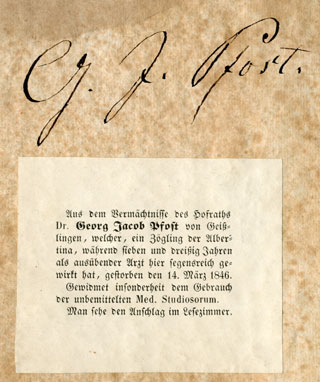 G. J. Pfost.
Aus dem Vermächtnisse des Hofraths
Dr. Georg Jacob Pfost von Geiß-
lingen, welcher, ein Zögling der Alber-
tina, während sieben und dreißig Jahren
als ausübender Arzt hier segensreich ge-
wirkt hat, gestorben den 14. März 1846.
Gewidmet insonderheit dem Gebrauch
der unbemittelten Med. Studiosorum.
Man sehe den Anschlag im Lesezimmer.